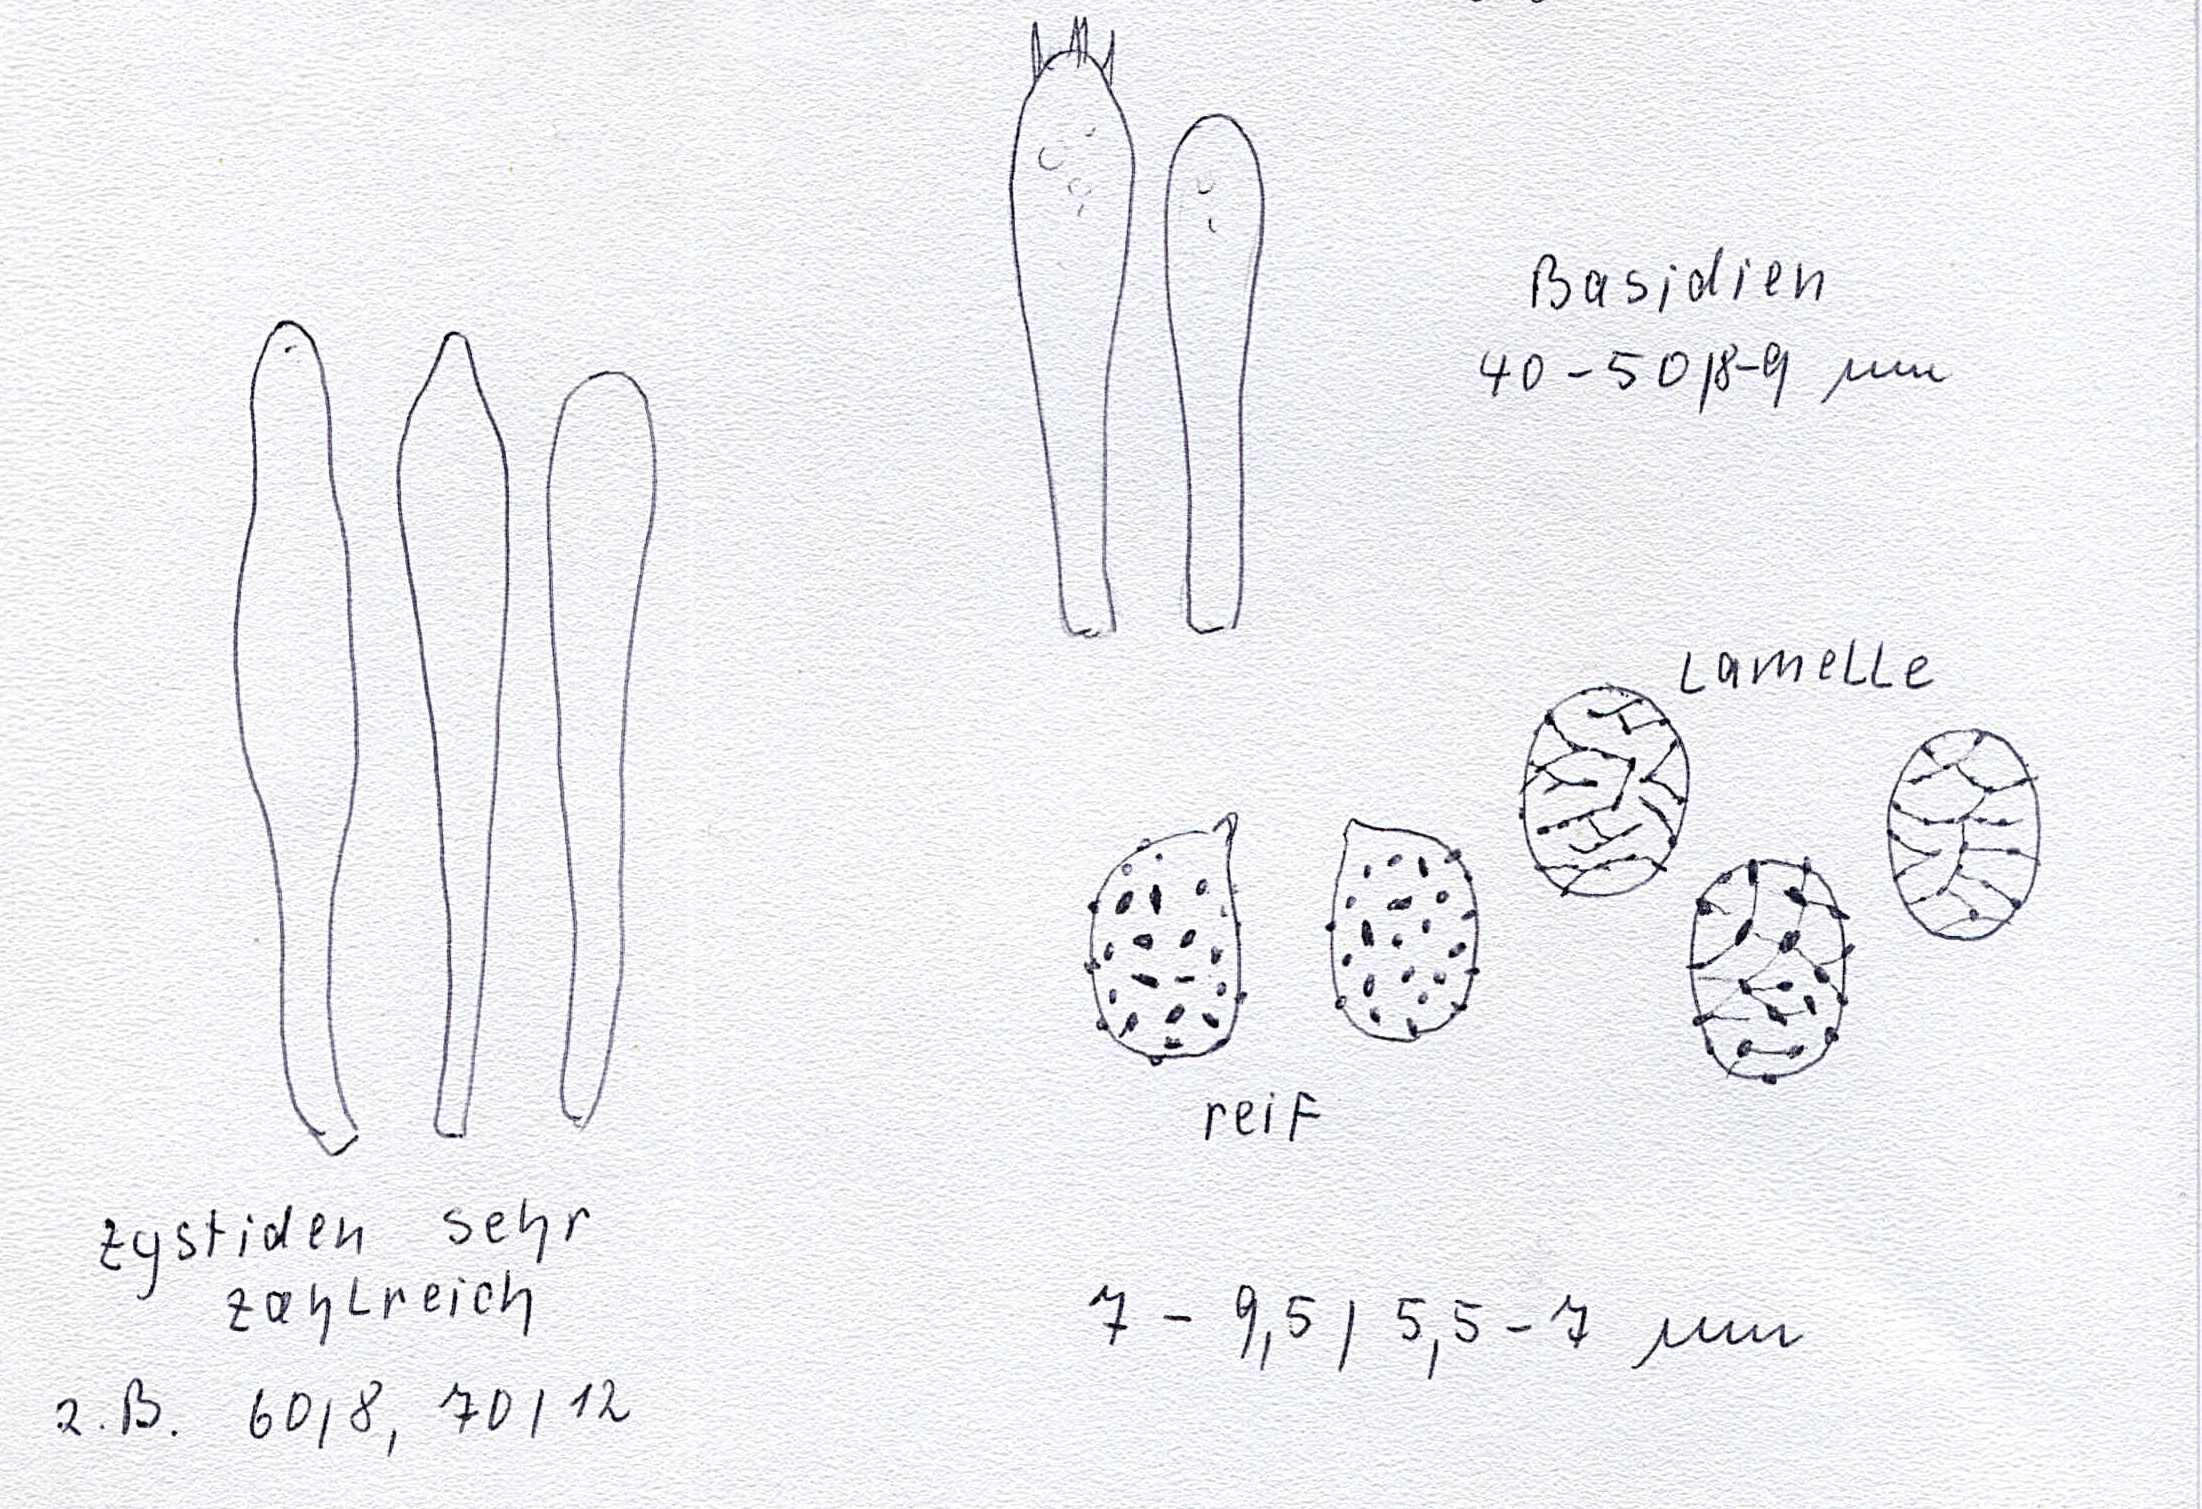 Basidien
40-50/8-9 µm
Lamelle
reif
Zystiden sehr
zahlreich
z.B. 60/8, 70/12
7 - 9,5 / 5,5 - 7 µm